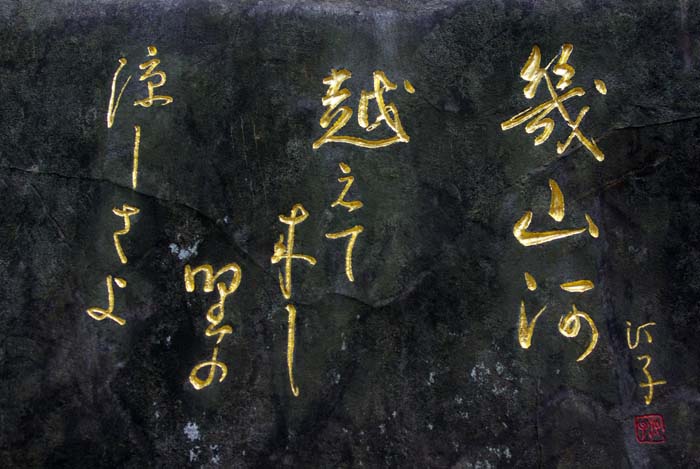 幾山河
越えて
来し
野の
涼しさよ
汀子